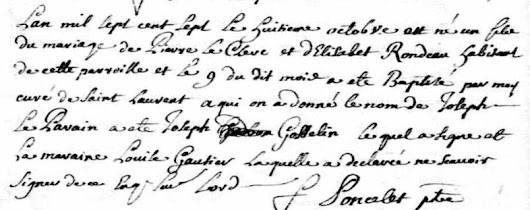 Lan mil sept cent sept le huitieme octobre est né un fils
du mariage de Pierre le Clerc et d'Elisabet Rondeau habitant
de cette parroisse et le 9 du dit mois a ete Baptisé par moy
curé de Saint Laurent a qui on a donné le nom de Joseph
le Parain a ete Joseph Gosselin lequel a signe et
la maraine Louise Gautier laquelle a declareé ne scavoir
signer de ce suiv lord
f Poncelet ptre